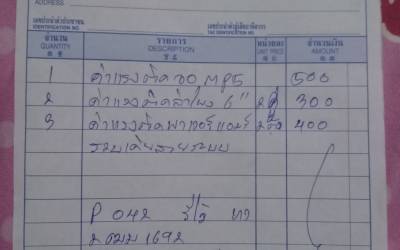 ADDRESS
เลขประจำตัวประชาชน
IDENTIFICATION NO.
เลขประจำตัวผู้เสียภาษีอากร
TAX IDENTIFICATION NO.
จำนวน รายการ หน่วยละ จำนวนเงิน
QUANTITY DESCRIPTION UNIT PRICE AMOUNT
1 ค่าแรงติดจอ MP5 500
2 ค่าแรงติดลำโพง 6" 2คู่ 300
3 ค่าแรงติดพาวเวอร์แอมป์ 400
รวมเดินสายระบบ
P 042
1692